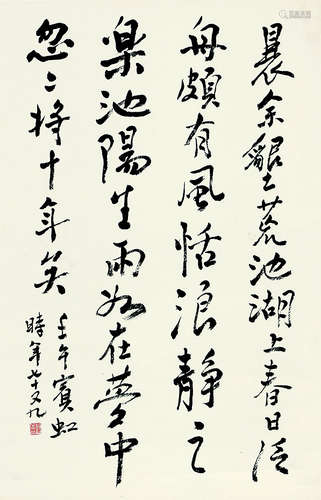 曩余墾土荒池湖上春日泛
舟頗有風恬浪靜之
樂池陽坐雨如在夢中
忽〻將十年矣
壬午賓虹
時年七十又九